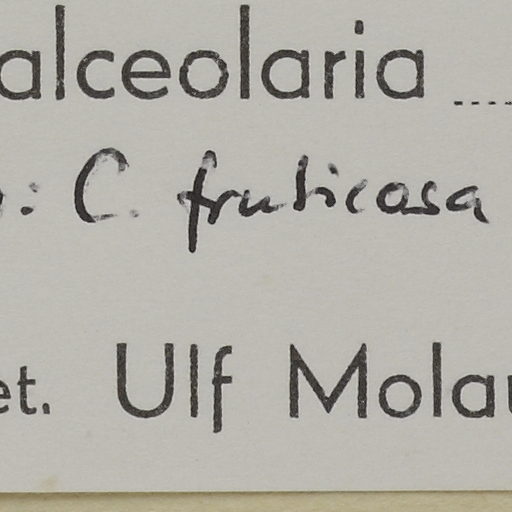 alceolaria
: C. fruticosa
et. Ulf Molau